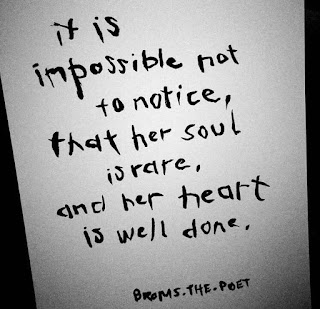 it is
impossible not
to notice,
that her soul
is rare,
and her heart
is well done.
BROMS.THE.POET